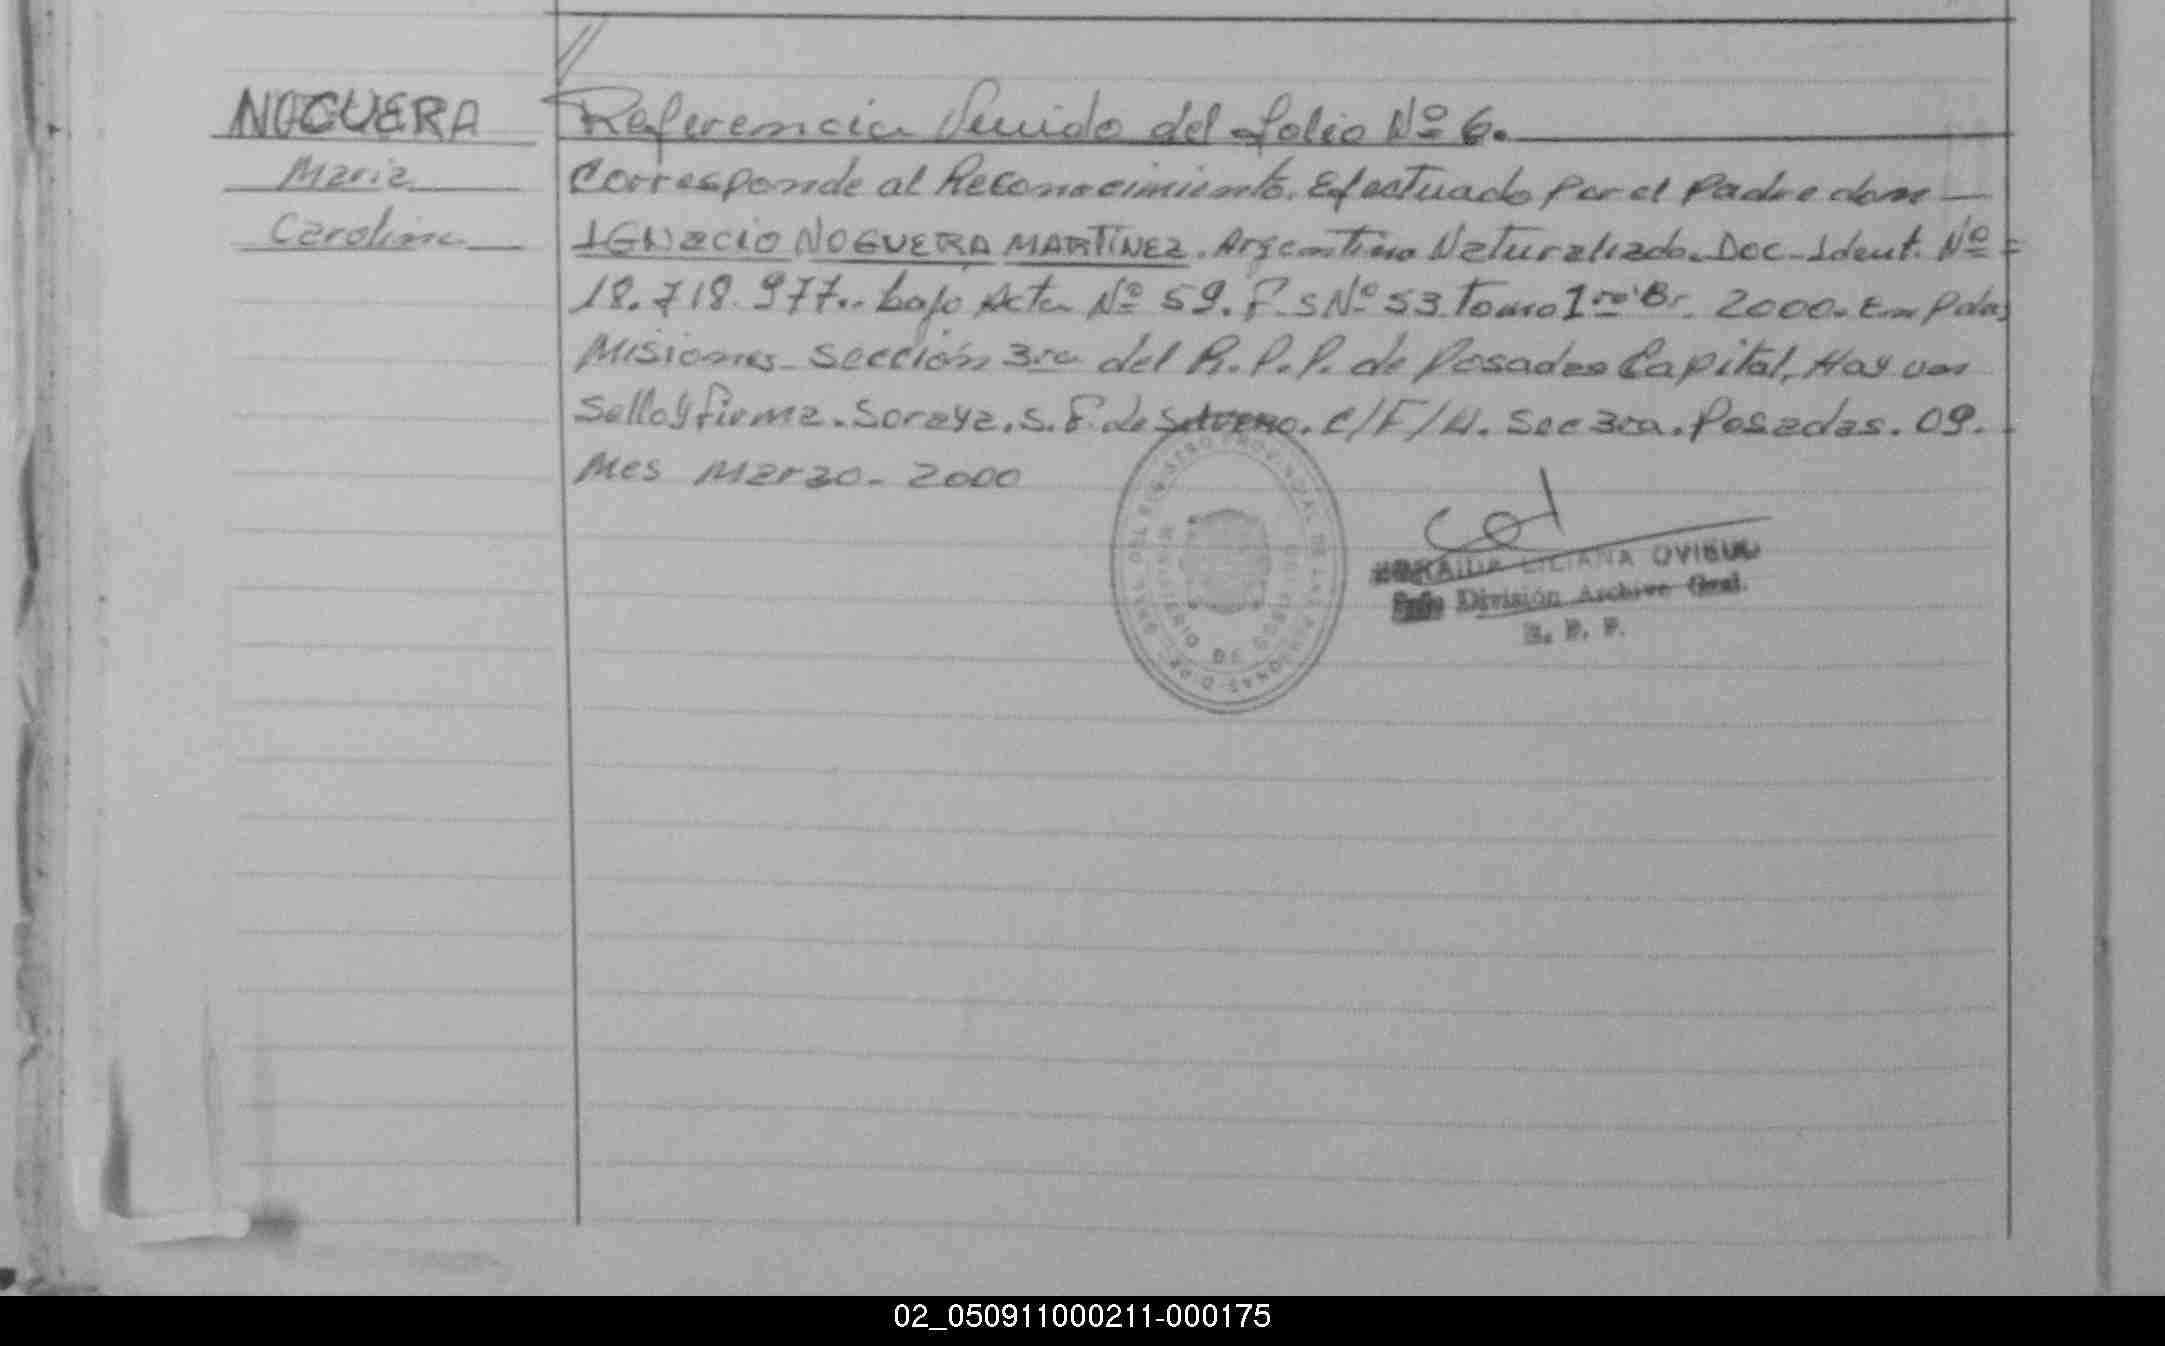 NOGUERA
Maria
Carolina
Referencia Venido del folio Nº 6.
Corresponde al Reconocimiento. Efectuado Por el Padre don —
IGNacio NOGUERA MARTÍNEZ. Argentino Naturalizado. Doc. Ident. Nº =
18.718.977.. bajo Acta Nº 59. F.s Nº 53 Tomo 1ro Br. 2000. En Pdas
Misiones - Sección 3ra del R.P.P. de Posadas Capital. Hay un
Sello y firma. Soraya. S. F. de C/F/H. Sec 3ra. Posadas. 09.
Mes Marzo - 2000
MINISTERIO DE GOBIERNO
LILIANA OVIEDO
Jefe División Archivo Gral.
R. P. P.
02_050911000211-000175